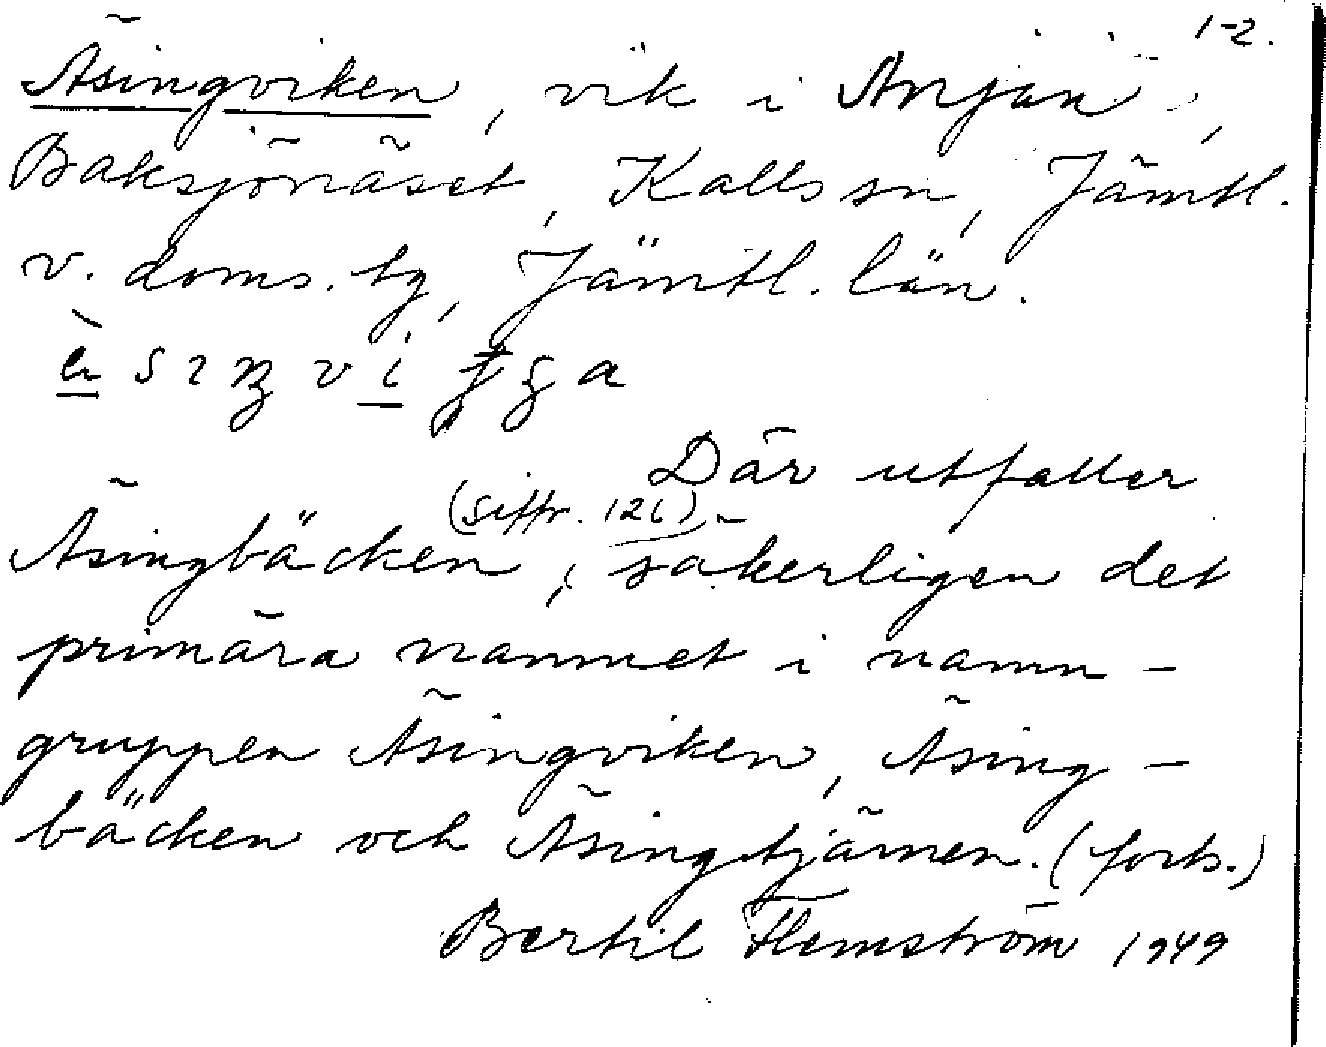 1-2.
Äsingviken, vik i Anjan,
Baksjönäset, Kalls sn, Jämtl.
v. doms. tg, Jämtl. län.
Där utfaller
(siffr. 126)
Äsingbäcken, säkerligen det
primära namnet i namn-
gruppen Äsingviken, Äsing-
bäcken och Äsingtjärnen. (forts.)
Bertil Flemström 1949